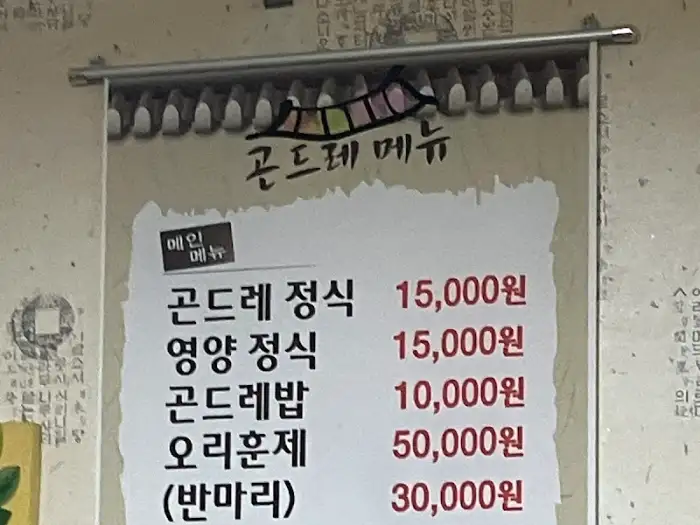 곤드레 메뉴
메인
메뉴
곤드레 정식 15,000원
영양 정식 15,000원
곤드레밥 10,000원
오리훈제 50,000원
(반마리) 30,000원